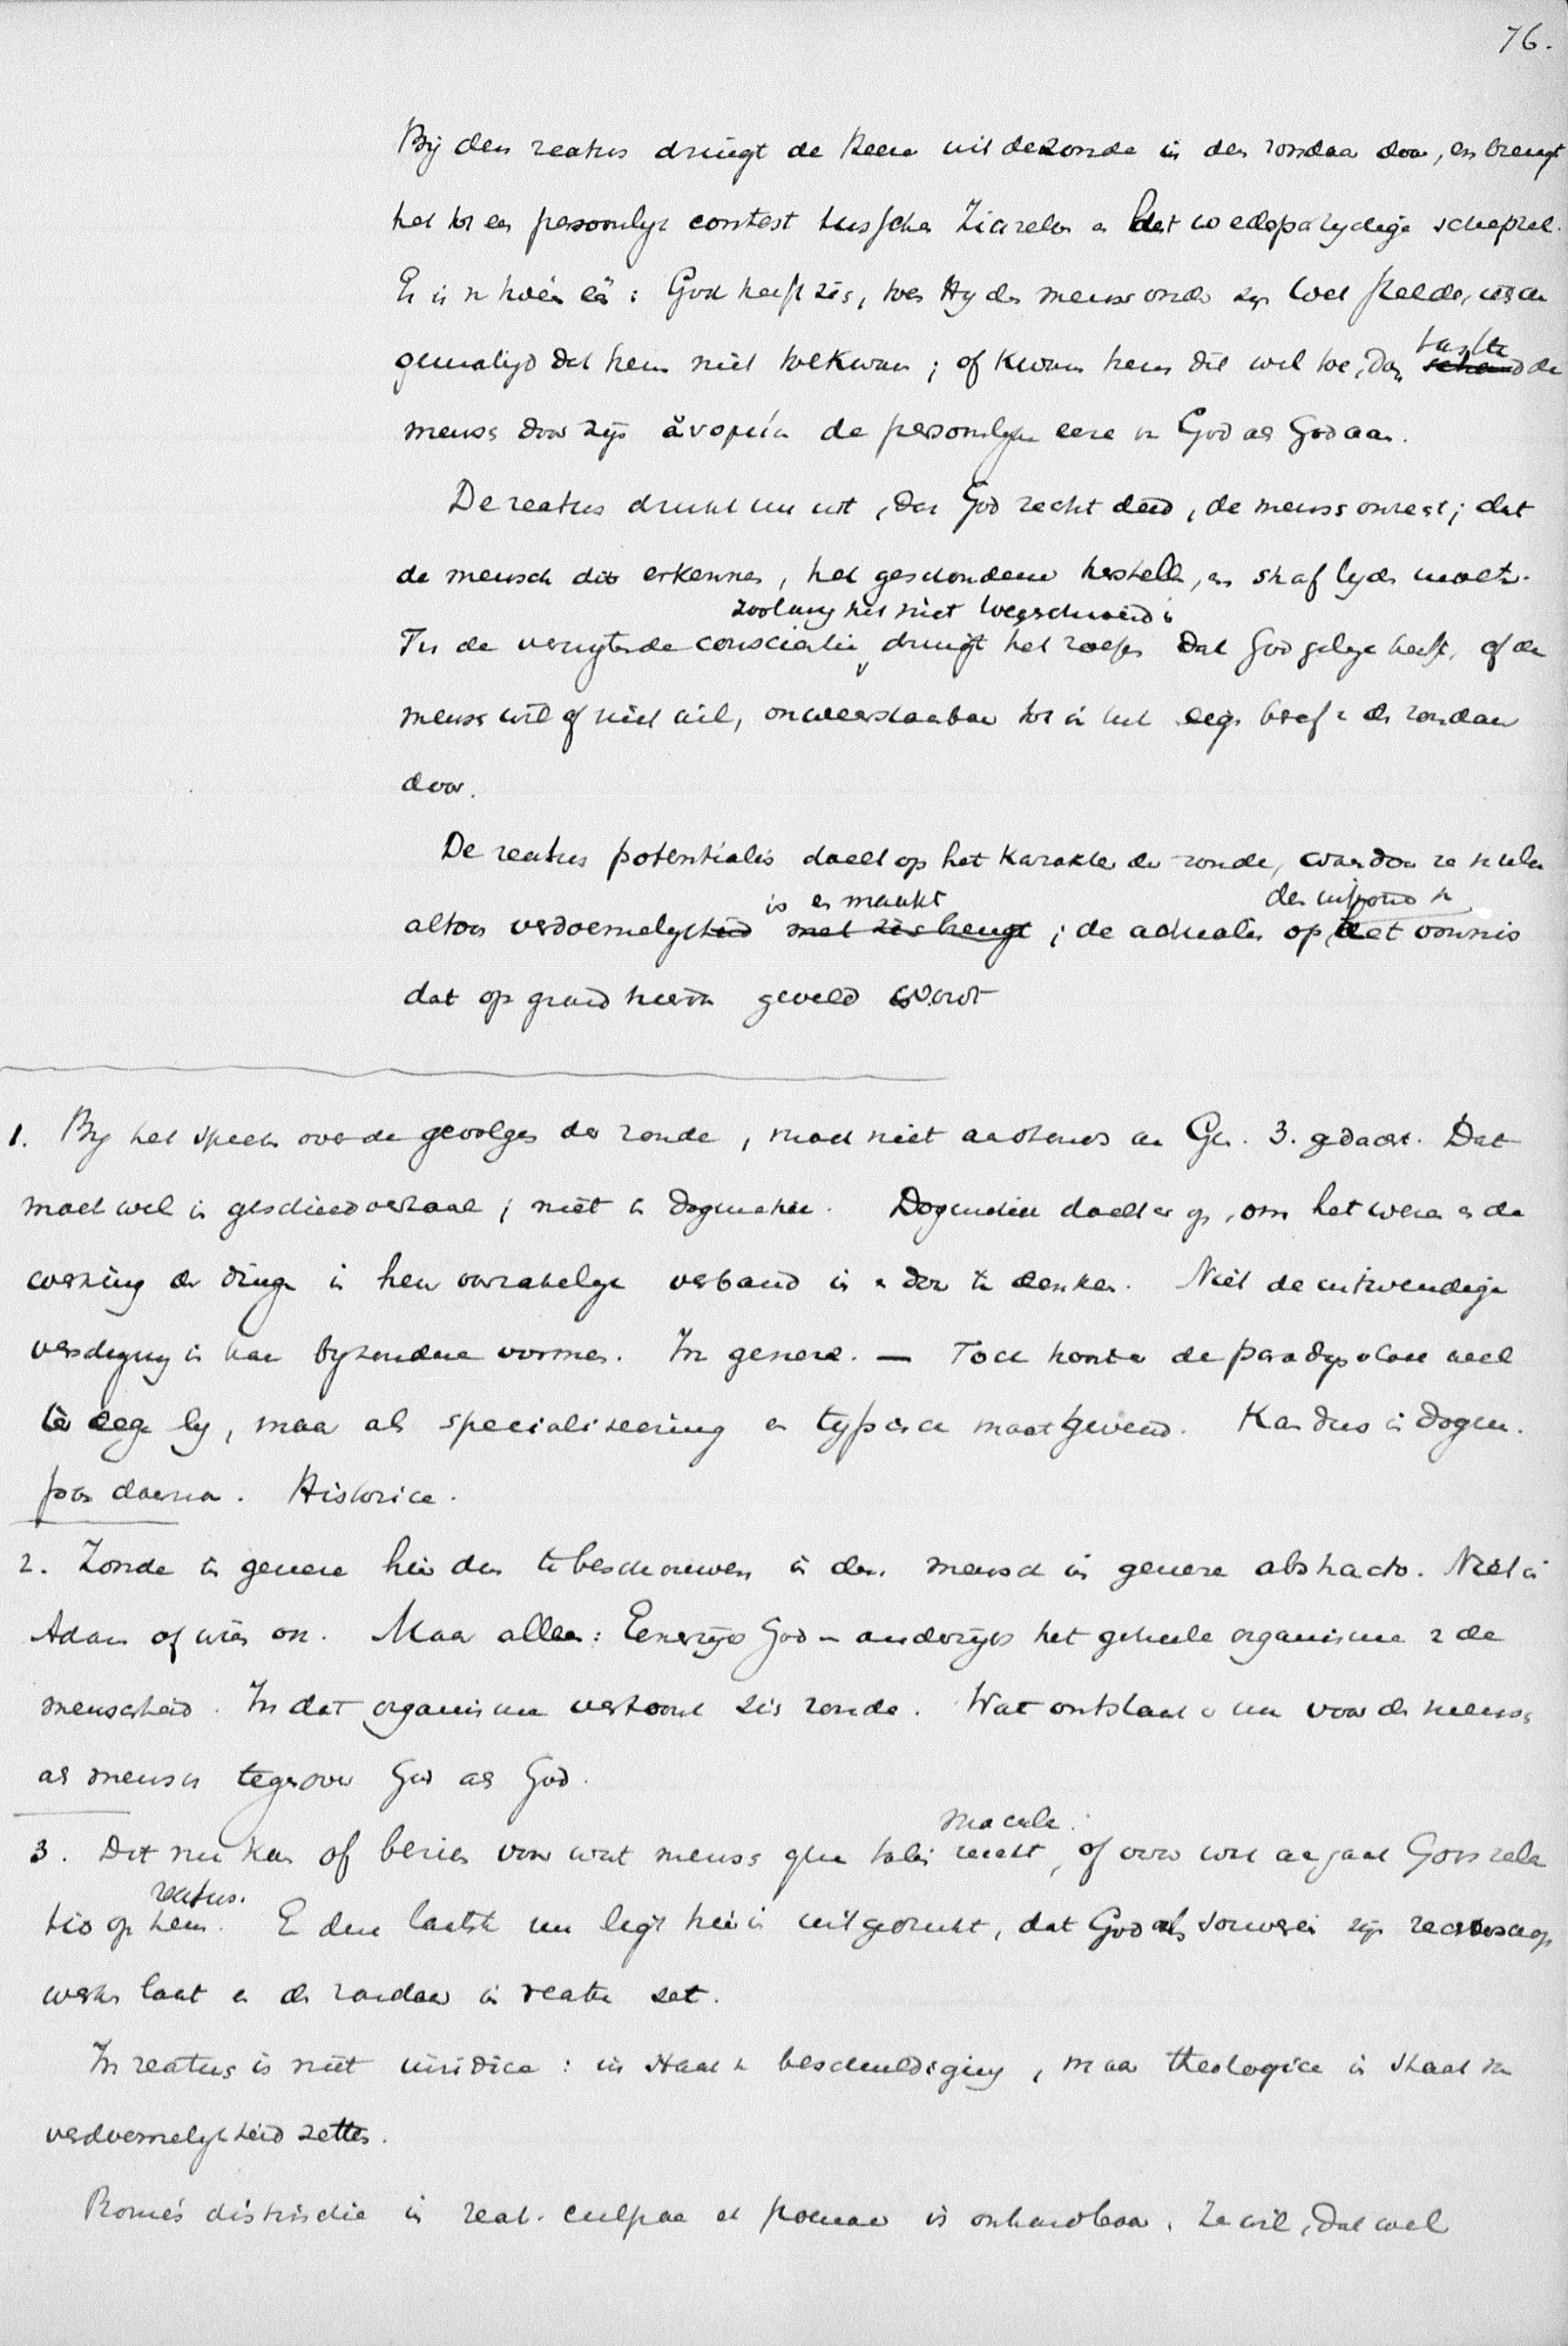 76.
Bij den reatus dringt de Heere uit de zonde in den zondaar door, en brengt
het tot een persoonlijk contest tusschen Zichzelven en het wederpartijdige schepsel.
Er is n twéén één: God heeft zich, toen Hij den mensch onder zijn Wet stelde, iets aan
gematigd dat hem niet toekwam; of kwam hem dit wel toe, dan tastte de
mensch door zijn ἀνομία de persoonlijke eere van God als God aan.
De reatus drukt nu uit, dat God recht deed, de mensch onrecht; dat
de mensch dit erkennen, het geschondene herstellen, en straf lijden moet.
zoolang het niet weggeschroeid is
In de verwijtende conscientie dringt het besef dat God gelijk heeft, of de
mensch wil of niet wil, onweerstaanbaar tot in het eigen besef van den zondaar
door.
De reatus potentialis doelt op het karakter der zonde, waardoor ze in zich
is en maakt den inhoud van
altoos verdoemelijk met zich brengt; de actualis op het vonnis
dat op grond hiervan geveld wordt
1. Bij het spreken over de gevolgen der zonde, moet niet aanstonds aan Gen. 3. gedacht. Dat
moet wel in geschiedverhaal; niet in dogmatiek. Dogmatiek doelt er op, om het wezen en de
werking der dingen in hun oorzakelijk verband in en door te denken. Niet de uitwendige
verschijning in haar bijzondere vormen. In genere. — Toch komt de paradijsvloek wel
ter leeg bij, maar als specialiseering en typisch maatgevend. Kan dus in dogm.
pas daarna. Historice.
2. Zonde in genere hier dus te beschouwen in den mensch in genere abstracto. Niet in
Adam of wien ook. Maar alleen: Eenerzijds God – anderzijds het geheele organisme van de
menschheid. In dat organisme vertoont zich zonde. Wat ontstaat er nu voor den mensch
als mensch tegenover God als God.
macula.
3. Dit nu kan of bezien voor wat mensch qua talis raakt, of voor wat aangaat Gods rela
reatus.
tio op hem. En dien laatste nu ligt hierin uitgedrukt, dat God als Souverein zijn rechtsmacht
werken laat en den zondaar in reatu zet.
In reatus is niet iuridice: in staat van beschuldiging, maar theologice in staat van
verdoemelijkheid zetten.
Rome's distinctie in reat. culpae et poenae is onhoudbaar. Ze wil, dat wel